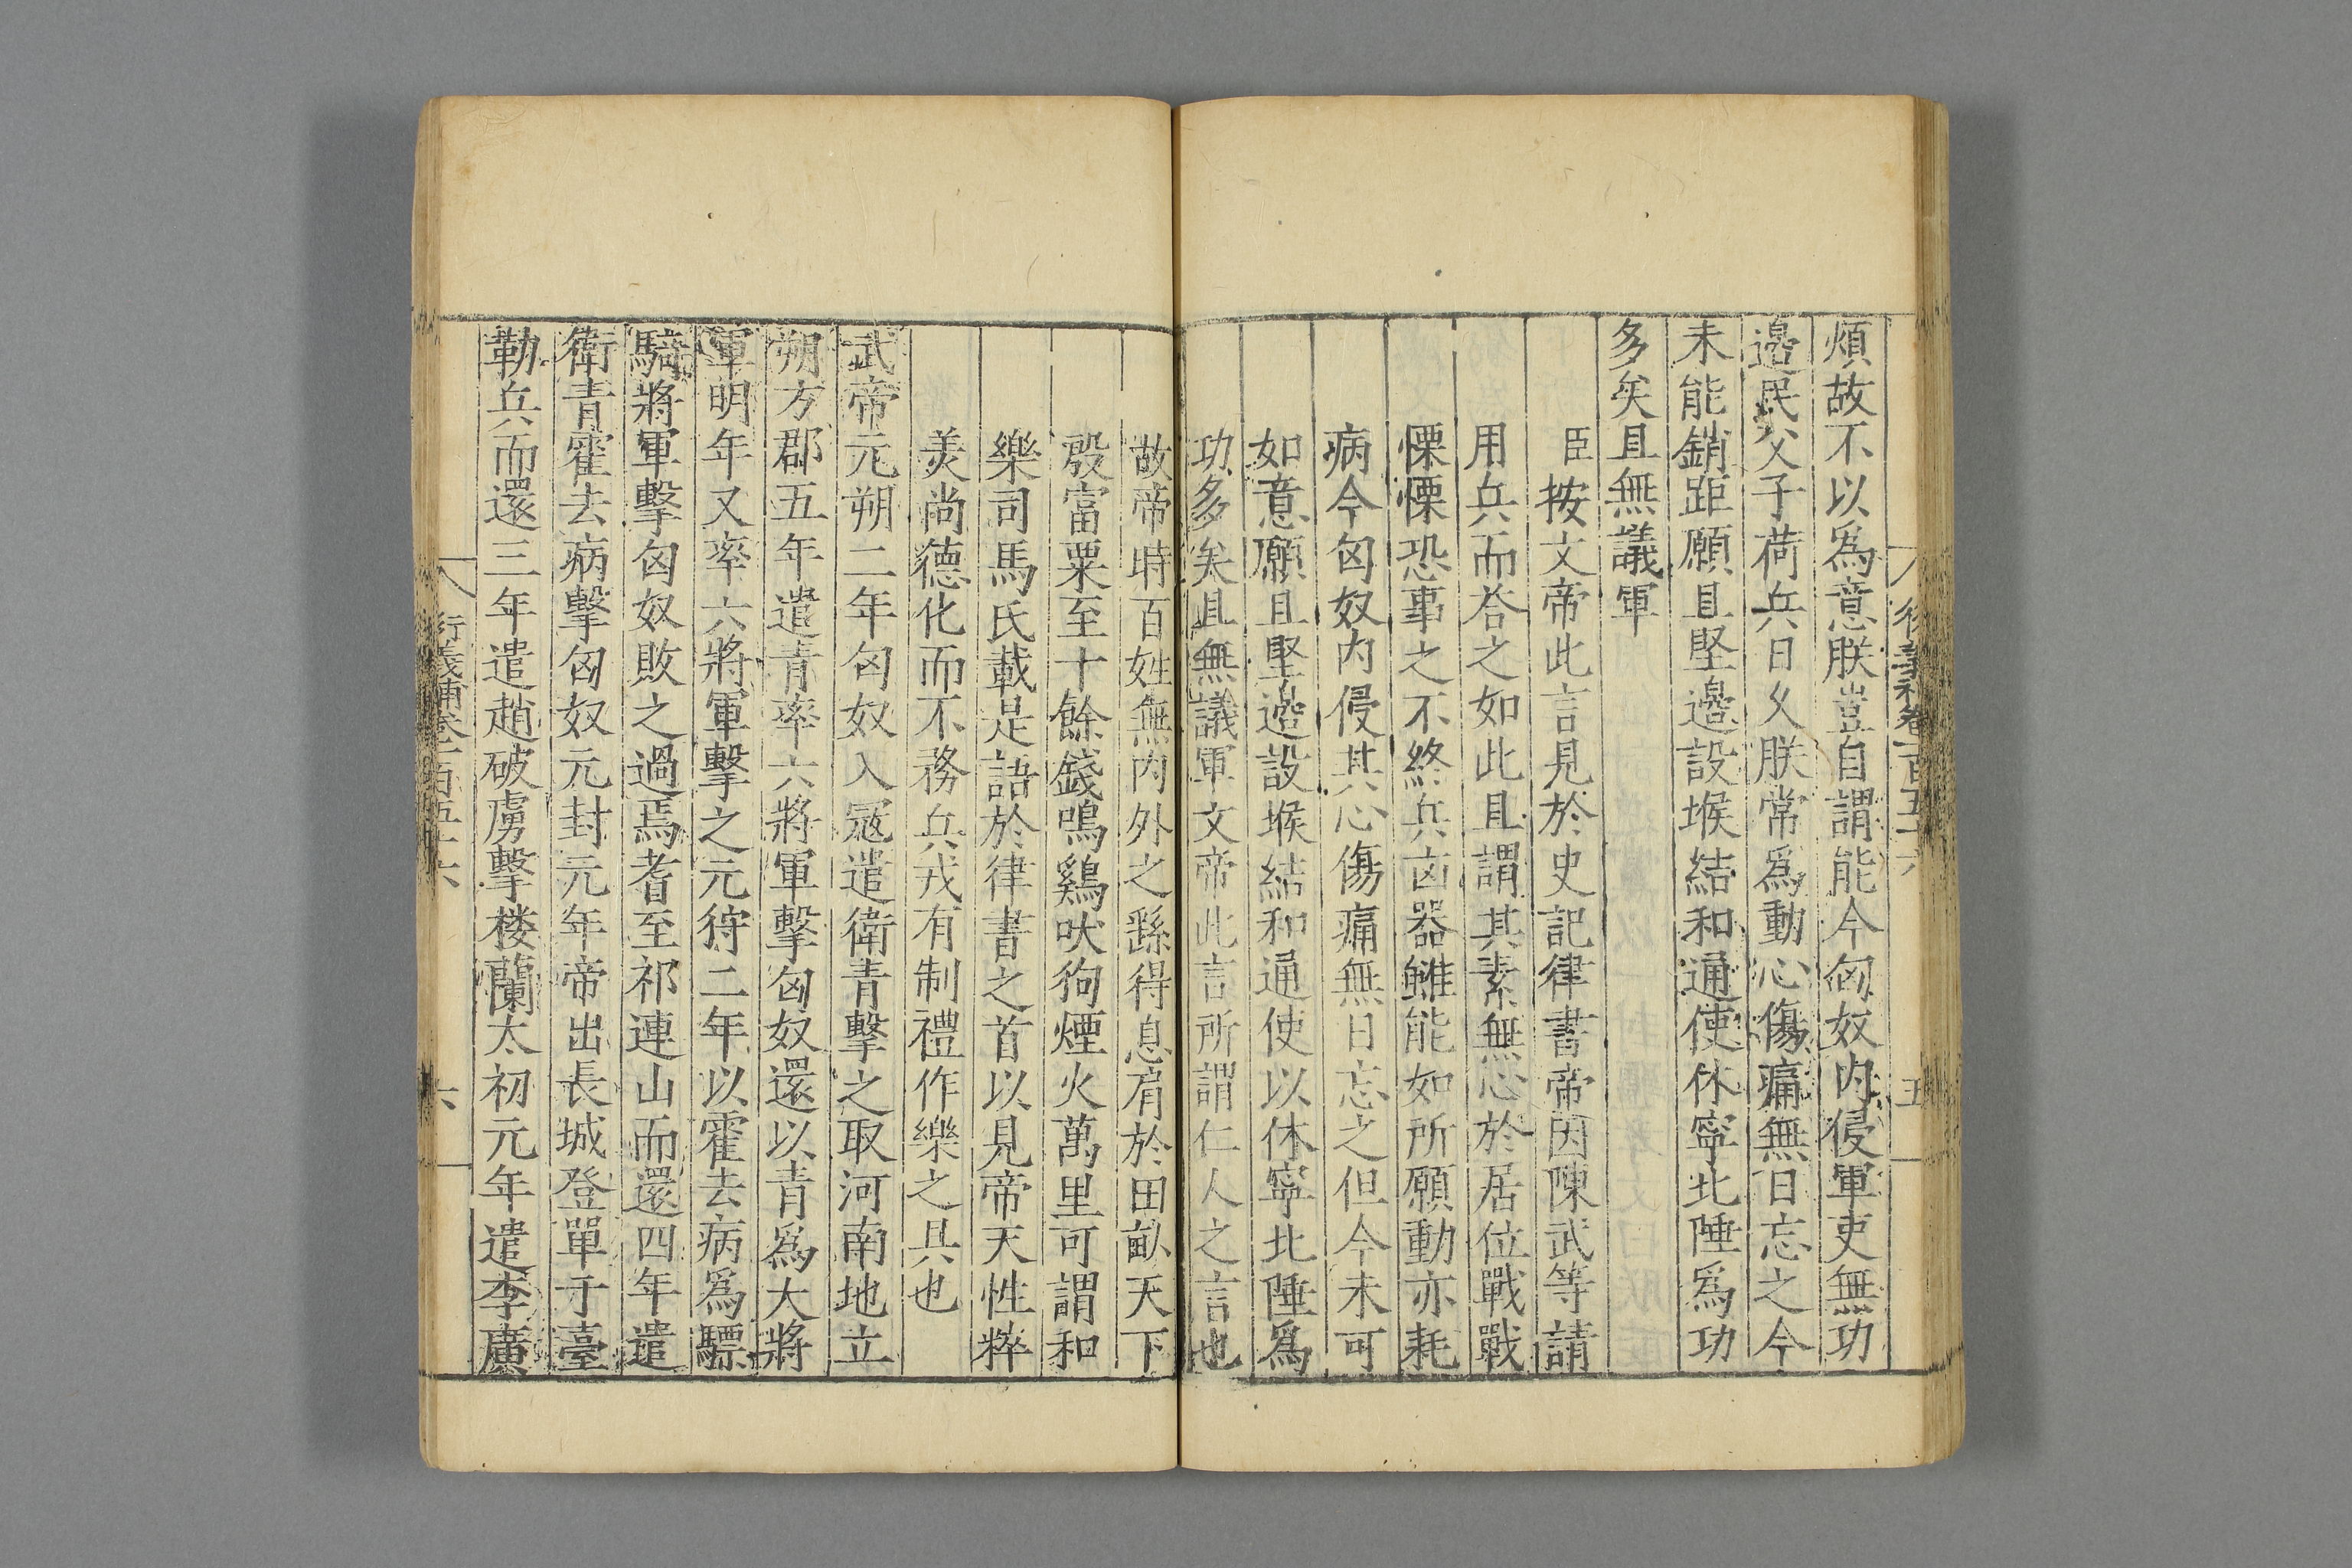 衍義補卷一百五十六
五
煩故不以爲意朕豈自謂能今匈奴内侵軍吏無功
邉民父子荷兵日乆朕常爲動心傷痛無日忘之今
未能銷距願且堅邉設堠結和通使休寧北陲爲功
多矣且無議軍
臣按文帝此言見於史記律書帝因陳武等請
用兵而荅之如此且謂其素無心於居位戰戰
慄慄恐事之不終兵凶器雖能如所願動亦耗
病今匈奴内侵其心傷痛無日忘之但今未可
如意願且堅邉設堠結和通使以休寧北陲爲
功多矣且無議軍文帝此言所謂仁人之言也
故帝時百姓無内外之繇得息肩於田畝天下
殷富粟至十餘錢鳴鷄吠狗煙火萬里可謂和
樂司馬氏載是語於律書之首以見帝天性粹
美尚德化而不務兵戎有制禮作樂之具也
武帝元朔二年匈奴入冦遣衛青擊之取河南地立
朔方郡五年遣青率六將軍擊匈奴還以青爲大將
軍明年又率六將軍擊之元狩二年以霍去病爲驃
騎將軍擊匈奴敗之過焉耆至祁連山而還四年遣
衛青霍去病擊匈奴元封元年帝出長城登單于臺
勒兵而還三年遣趙破虜擊楼蘭太初元年遣李廣
衍義補卷一百五十六
六